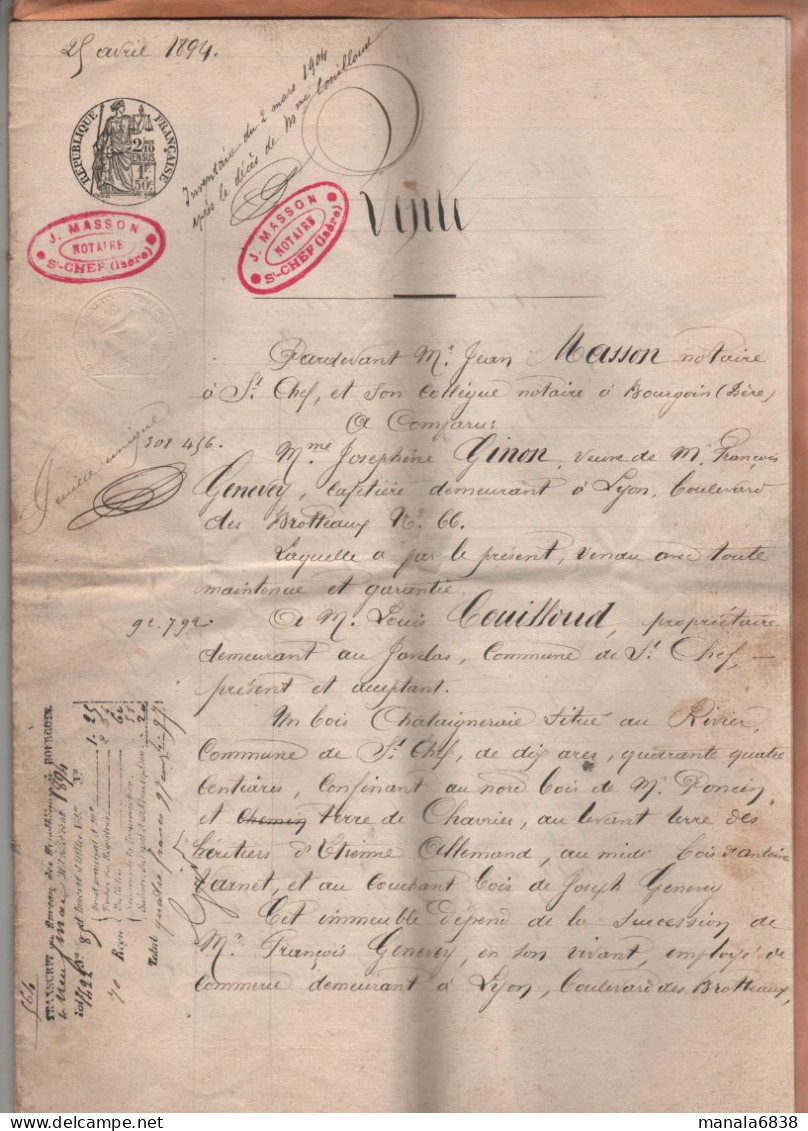 25 avril 1894.
Inventaire du 2 mars 1904
après le décès de Mme Couilloud
RÉPUBLIQUE FRANÇAISE
2/10 EN SUS
1F.
50c.
J. MASSON
NOTAIRE
St-CHEF (Isère)
J. MASSON
NOTAIRE
St-CHEF (Isère)
Vente
Pardevant Me. Jean Masson notaire
à St. Chef, et son collègue notaire à Bourgoin (Isère)
A Comparu:
Mme Joséphine Ginon, veuve de M. François
Genevey, cafetière demeurant à Lyon, boulevard
des Brotteaux No. 66.
Laquelle a par le présent, vendu avec toute
maintenue et garantie
A M. Louis Couilloud, propriétaire
demeurant au Jordas, Commune de St. Chef, —
présent et acceptant.
Un bois Chataigneraie situé au Rivier,
Commune de St. Chef, de dix ares, quarante quatre
centiares, confinant au nord bois de M. Poncin,
et chemin terre de Chavrier, au levant terre des
héritiers d'Etienne Allemand, au midi bois d'antoine
Varnet, et au couchant bois de Joseph Genevey
Cet immeuble dépend de la succession de
M. François Genevey, en son vivant, employé de
commerce demeurant à Lyon, boulevard des Brotteaux,
Feuille unique
308 456.
92.792.
TRANSCRIT au Bureau des Hypothèques de BOURGOIN,
le neuf mai 1894
Reçu
Total: quatre francs 97
564
manala6838